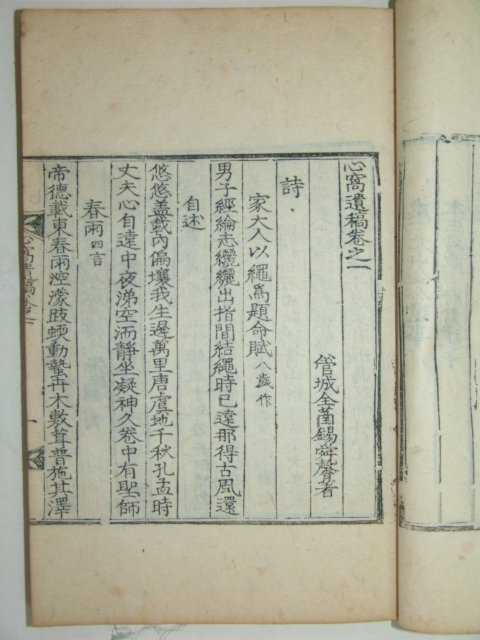 心窩遺稿卷之一
管城全菌錫舜聲著
詩
家大人以繩爲題命賦 八歲作
男子經綸志纚纚出指間結繩時已遠那得古風還
自述
悠悠蓋載內偏壤我生遲萬里唐虞地千秋孔孟時
丈夫心自遠中夜涕空洏靜坐凝神久卷中有聖師
春雨 四言
帝德載東春雨涳濛跂蝡動蟄卉木敷茸普施其澤
心窩遺稿卷一
一